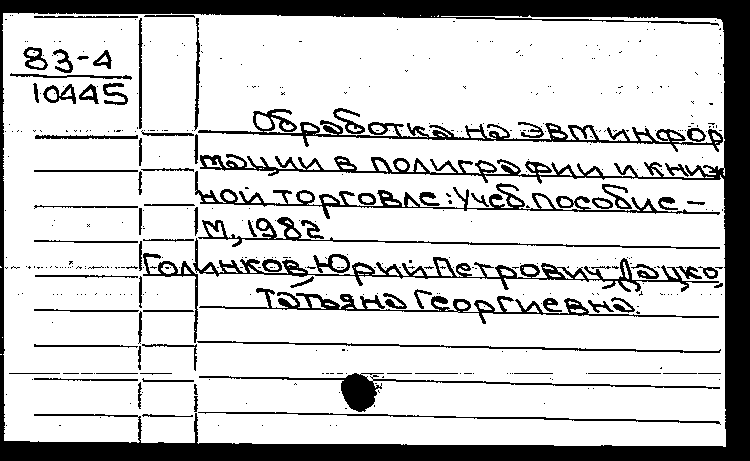 83-4
10445
Обработка на ЭВМ инфор
мации в полиграфии и книж
ной торговле: Учеб. пособие.–
М., 1982.
Голинков Юрий Петрович, Дацко
Татьяна Георгиевна.